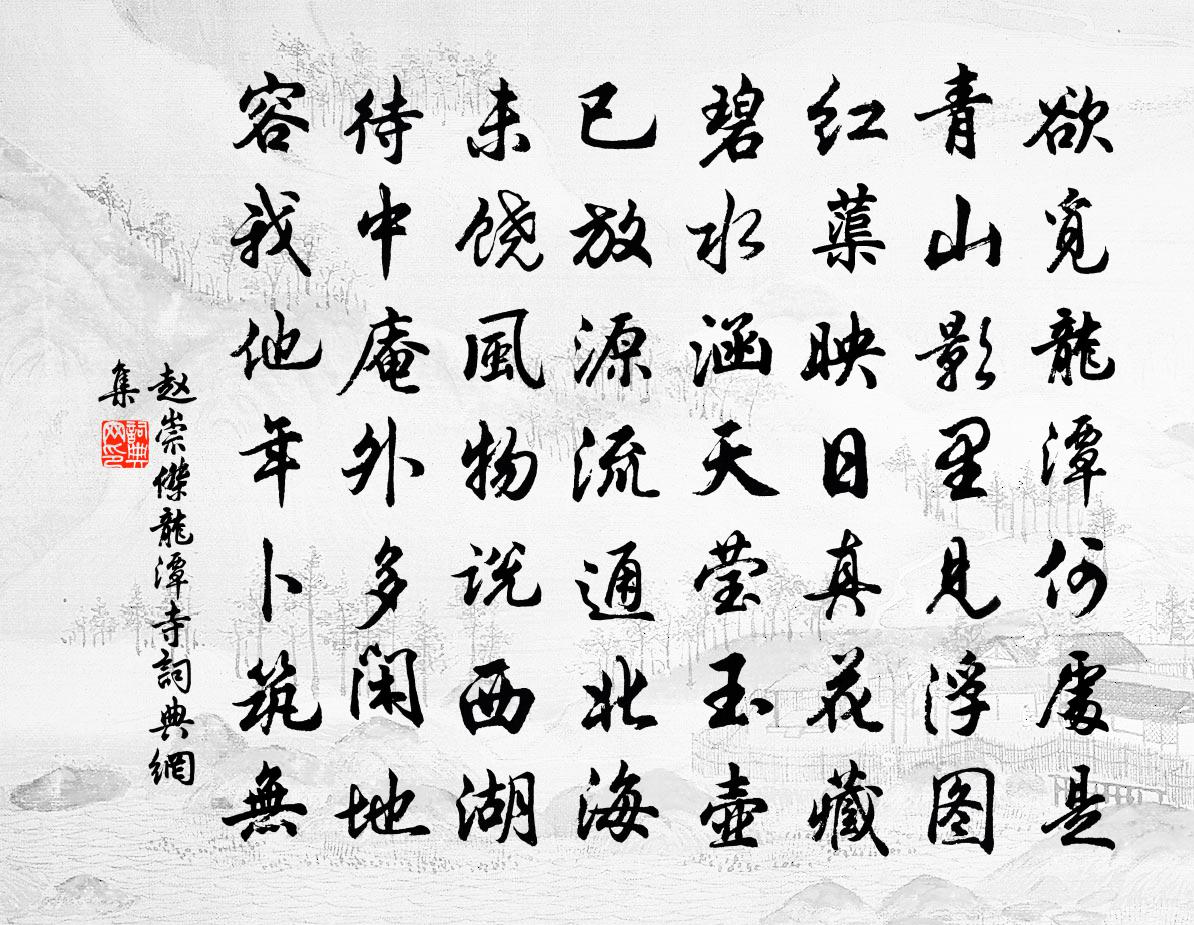 欲觅龍潭何處是
青山影里見浮图
红蕖映日真花藏
碧水涵天莹玉壺
已放源流通北海
未饶風物说西湖
待中庵外多闲地
容我他年卜筑無
赵崇傑龍潭寺詞典網
集
詞典
网印